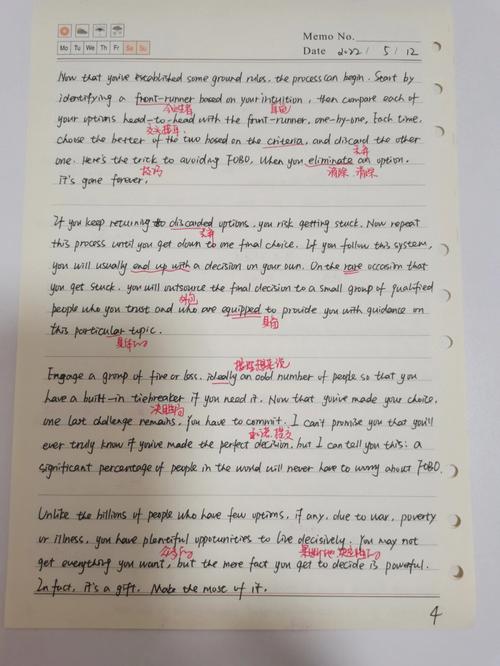 Memo No.
Mo Tu We Th Fr Sa Su
Date 2022 / 5 / 12
Now that you've established some ground rules, the process can begin. Start by
identifying a front-runner based on your intuition, then compare each of
your options head-to-head with the front-runner, one-by-one. Each time,
交头接耳
choose the better of the two based on the criteria, and discard the other
丢弃
one. Here's the trick to avoiding FOBO. When you eliminate an option,
技巧
消除 清除
it's gone forever.
If you keep returning to discarded options, you risk getting stuck. Now repeat
丢弃
this process until you get down to one final choice. If you follow this system,
you will usually end up with a decision on your own. On the rare occasion that
you get stuck, you will outsource the final decision to a small group of qualified
外包
people who you trust and who are equipped to provide you with guidance on
具备
this particular topic.
具体的
Engage a group of five or less, ideally an odd number of people so that you
have a built-in tiebreaker if you need it. Now that you've made your choice,
决胜局
one last challenge remains. You have to commit. I can't promise you that you'll
ever truly know if you've made the perfect decision, but I can tell you this: a
significant percentage of people in the world will never have to worry about FOBO.
Unlike the billions of people who have few options, if any, due to war, poverty
or illness, you have plentiful opportunities to live decisively. You may not
get everything you want, but the mere fact you get to decide is powerful.
In fact, it's a gift. Make the most of it.
4